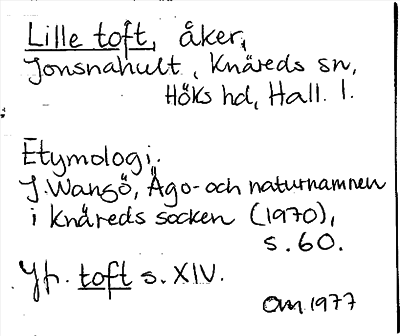 Lille toft, åker,
Jonsnahult, Knäreds sn,
Höks hd, Hall. l.
Etymologi.
J. Wansö, Ägo- och naturnamnen
i Knäreds socken (1970),
s. 60.
Jfr. toft s. XIV.
OM 1977